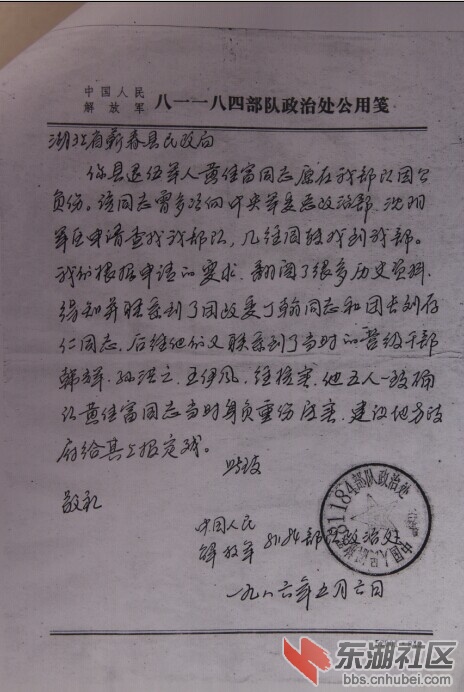 中国人民
解放军 八一一八四部队政治处公用笺
湖北省蕲春县民政局
你县退伍军人黄佳富同志原在我部队因公
负伤。该同志曾多次向中央军委总政治部、沈阳
军区申请查找我部队,几经周转找到我部。
我们根据申请的要求,翻阅了很多历史资料,
得知并联系到了团政委丁翰同志和团长刘存
仁同志,后经他们又联系到了当时的营级干部
韩 孙洪之、王伊风,经核实,他五人一致确
认黄佳富同志当时身负重伤 建议地方政
府给其上报定残。
此致
敬礼
中国人民
解放军 81184部队政治处
一九八六年五月六日
中国人民解放军81184部队政治处
东湖社区
bbs.cnhubei.com